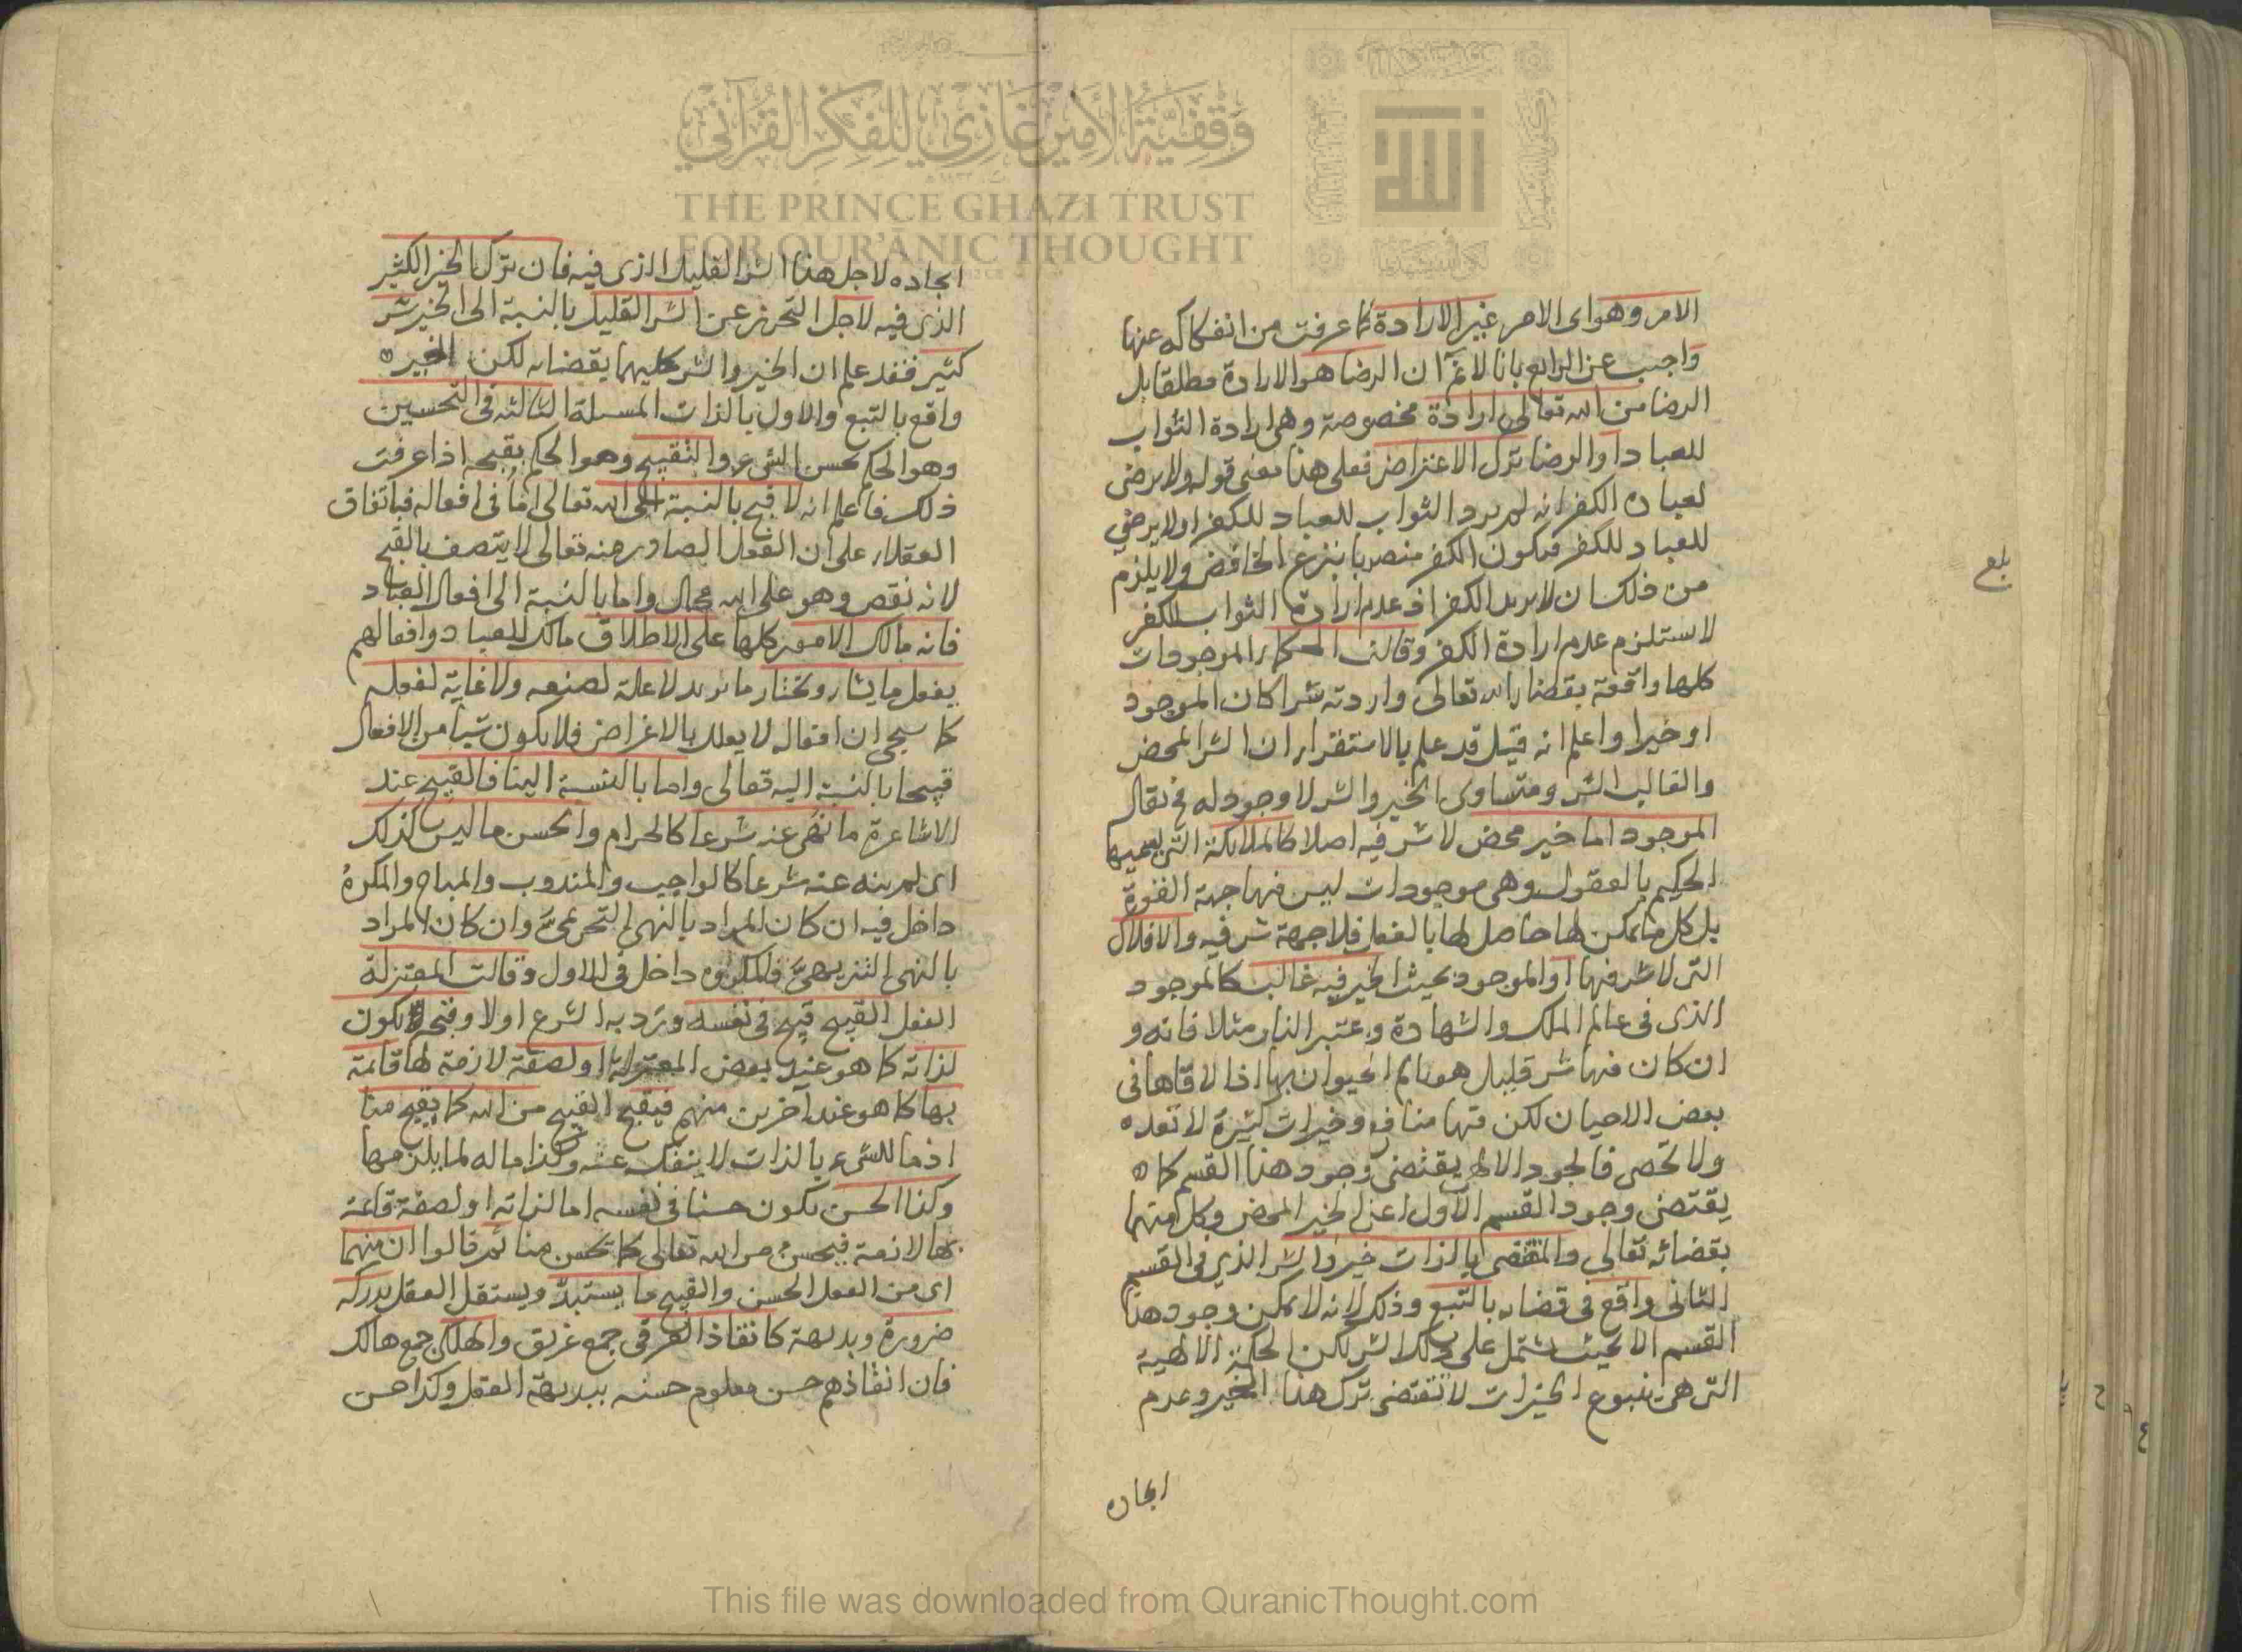 الامر وهو اى الامر غير الارادة لما عرفت من انفكاكه عنها
واجيب عن الرابع بانا لا نم ان الرضا هو الارادة مطلقا بل
الرضا من الله تعالى ارادة مخصوصة وهى ارادة الثواب
للعباد او الرضا ترك الاعتراض فعلى هذا معنى قوله ولا يرضى
لعباده الكفر انه لم يرد الثواب للعباد للكفر او لا يرضى
للعباد للكفر فيكون الكفر منصوبا بنزع الخافض ولا يلزم
من ذلك ان لا يريد الكفر اذ عدم ارادة الثواب للكفر
لا يستلزم عدم ارادة الكفر وقالت الحكماء الموجودات
كلها واقعة بقضاء الله تعالى وارادته شرا كان الموجود
او خيرا واعلم انه قيل قد علم بالاستقراء ان الشر المحض
والغالب الشر ومتساوى الخير والشر لا وجود له فح نقال
الموجود اما خير محض لا شر فيه اصلا كالملائكة التى يسميها
الحكيم بالعقول وهى موجودات ليس فيها جهة القوة
بل كل ما يمكن لها حاصل لها بالفعل فلا جهة شر فيه والافلاك
التى لا شر فيها او الموجود بحيث الخير فيه غالب كالموجود
الذى فى عالم الملك والشهادة واعتبر النار مثلا فانه و
ان كان فيها شر قليل هو تالم الحيوان بها اذا لاقاها فى
بعض الاحيان لكن فيها منافع وخيرات كثيرة لا تعد
ولا تحصى فالجود الالهى يقتضى وجود هذا القسم كما
يقتضى وجود القسم الاول اعنى الخير المحض وكل منهما
بقضائه تعالى والمقضى بالذات خير والشر الذى فى القسم
الثانى واقع فى قضاء بالتبع وذلك لانه لا يمكن وجود هذا
القسم الا بحيث يشتمل على ذلك الشر لكن الحكمة الالهية
التى هى ينبوع الخيرات لا تقتضى ترك هذا الخير وعدم
ايجاده
بلغ
ايجاده لاجل هذا الشر القليل الذى فيه فان ترك الخير الكثير
الذى فيه لاجل التحرز عن الشر القليل بالنسبة الى الخير شر
كثير فقد علم ان الخير والشر كليهما بقضائه لكن الخير
واقع بالتبع والاول بالذات المسئلة الثالثة فى التحسين
وهو الحكم بحسن الشىء والتقبيح وهو الحكم بقبحه اذا عرفت
ذلك فاعلم انه لا قبح بالنسبة الى الله تعالى اما فى افعاله فباتفاق
العقلاء على ان الفعل الصادر منه تعالى لا يتصف بالقبح
لانه نقص وهو على الله محال واما بالنسبة الى افعال العباد
فانه مالك الامور كلها على الاطلاق مالك للعباد وافعالهم
يفعل ما يشاء ويختار ما يريد لا علة لصنعه ولا غاية لفعله
كما سيجئ ان افعاله لا يعلل بالاغراض فلا يكون شيأ من الافعال
قبيحا بالنسبة اليه تعالى واما بالنسبة الينا فالقبيح عند
الاشاعرة ما نهى عنه شرعا كالحرام والحسن ما ليس كذلك
اى لم ينه عنه شرعا كالواجب والمندوب والمباح والمكروه
داخل فيه ان كان المراد بالنهى التحريمى وان كان المراد
بالنهى التنزيهى فالمكروه داخل فى الاول وقالت المعتزلة
الفعل القبيح قبيح فى نفسه ورد به الشرع اولا وقبحه يكون
لذاته كما هو عند بعض المعتزلة او لصفة لازمة لها قائمة
بها كما هو عند آخرين منهم فيقبح القبيح من الله كما يقبح منا
اذ ما للشىء بالذات لا ينفك عنه وكذا ما له لما يلزمها
وكذا الحسن يكون حسنا فى نفسه اما لذاته او لصفة قائمة
بها لازمة فيحسن من الله تعالى كما تحسن منا ثم قالوا ان منهما
اى من الفعل الحسن والقبيح ما يستبد ويستقل العقل بدركه
ضرورة وبديهة كانقاذ الغرقى جمع غريق والهلكى جمع هالك
فان انقاذهم حسن معلوم حسنه ببديهة العقل وكذا حسن
وقفية الأمير غازي للفكر القرآني
THE PRINCE GHAZI TRUST
FOR QUR'ĀNIC THOUGHT
This file was downloaded from QuranicThought.com